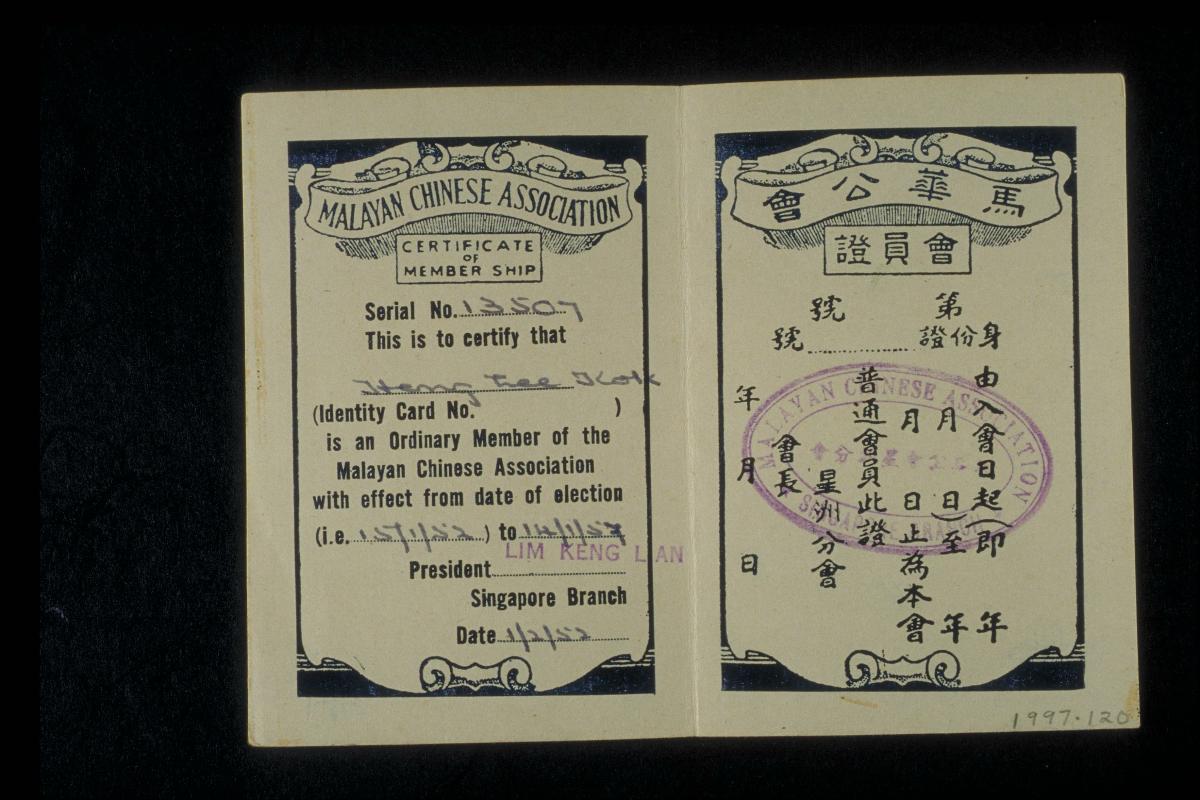 MALAYAN CHINESE ASSOCIATION
CERTIFICATE
OF
MEMBER SHIP
Serial No. 13507
This is to certify that
Heng Lee Kok
(Identity Card No. )
is an Ordinary Member of the
Malayan Chinese Association
with effect from date of election
(i.e. 15/1/52 ) to 14/1/57
LIM KENG LIAN
President
Singapore Branch
Date 1/2/52
馬華公會
會員證
第 號
身份證 號
由入會日起(即 年
月 日)至 年
月 日止為本會
普通會員此證
星洲分會
會長
年 月 日
MALAYAN CHINESE ASSOCIATION
SINGAPORE BRANCH
1997-120